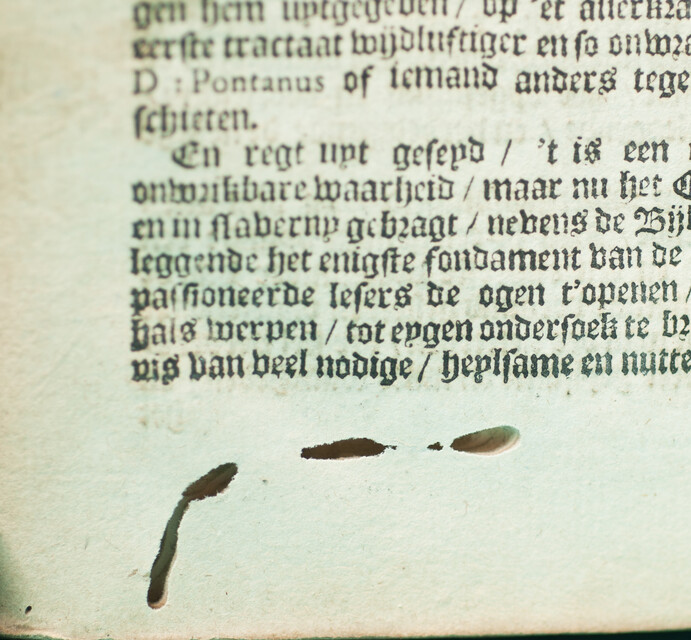 gen hem uytgegeven / op 'et
eerste tractaat wijdluftiger en so
D : Pontanus of iemand anders tege
schieten.
En regt uyt geseyd / 't is een
onwrikbare waarheid / maar nu het
en in slaverny gebragt / nevens de Bijb
leggende het enigste fondament van de
passioneerde lesers de ogen t'openen /
hals werpen / tot eygen ondersoek te br
nis van veel nodige / heylsame en nutte